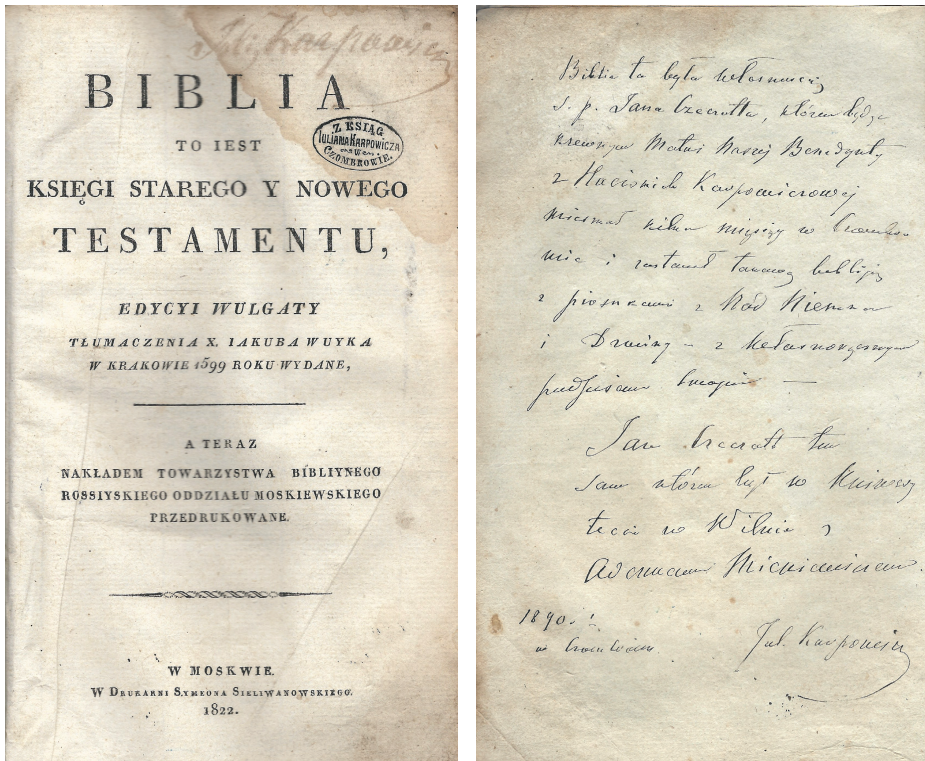 Jul. Karpowicz
BIBLIA
TO IEST
KSIĘGI STAREGO Y NOWEGO
TESTAMENTU,
Z KSIĄG
IULIANA KARPOWICZA
w
CZOMBROWIE.
EDYCYI WULGATY
TŁUMACZENIA X. IAKUBA WUYKA
W KRAKOWIE 1599 ROKU WYDANE,
A TERAZ
NAKŁADEM TOWARZYSTWA BIBLIYNEGO
ROSSIYSKIEGO ODDZIAŁU MOSKIEWSKIEGO
PRZEDRUKOWANE.
W MOSKWIE.
W DRUKARNI SYMEONA SIELIWANOWSKIEGO.
1822.
Biblia ta była własnością
ś. p. Jana Czeczotta, który będąc
krewnym Matki Naszej Benedykty
z Haciskich Karpowiczowej
mieszkał kilka miesięcy w Czombro
wie i zostawił takową biblię
z piosnkami z Nad Niemna
i Dźwiny - z własnoręcznym
podpisem
Jan Czeczott ten
sam który był w Uniwersy
tecie w Wilnie z
Adamem Mickiewiczem.
1890.
w Czombrowie
Jul. Karpowicz